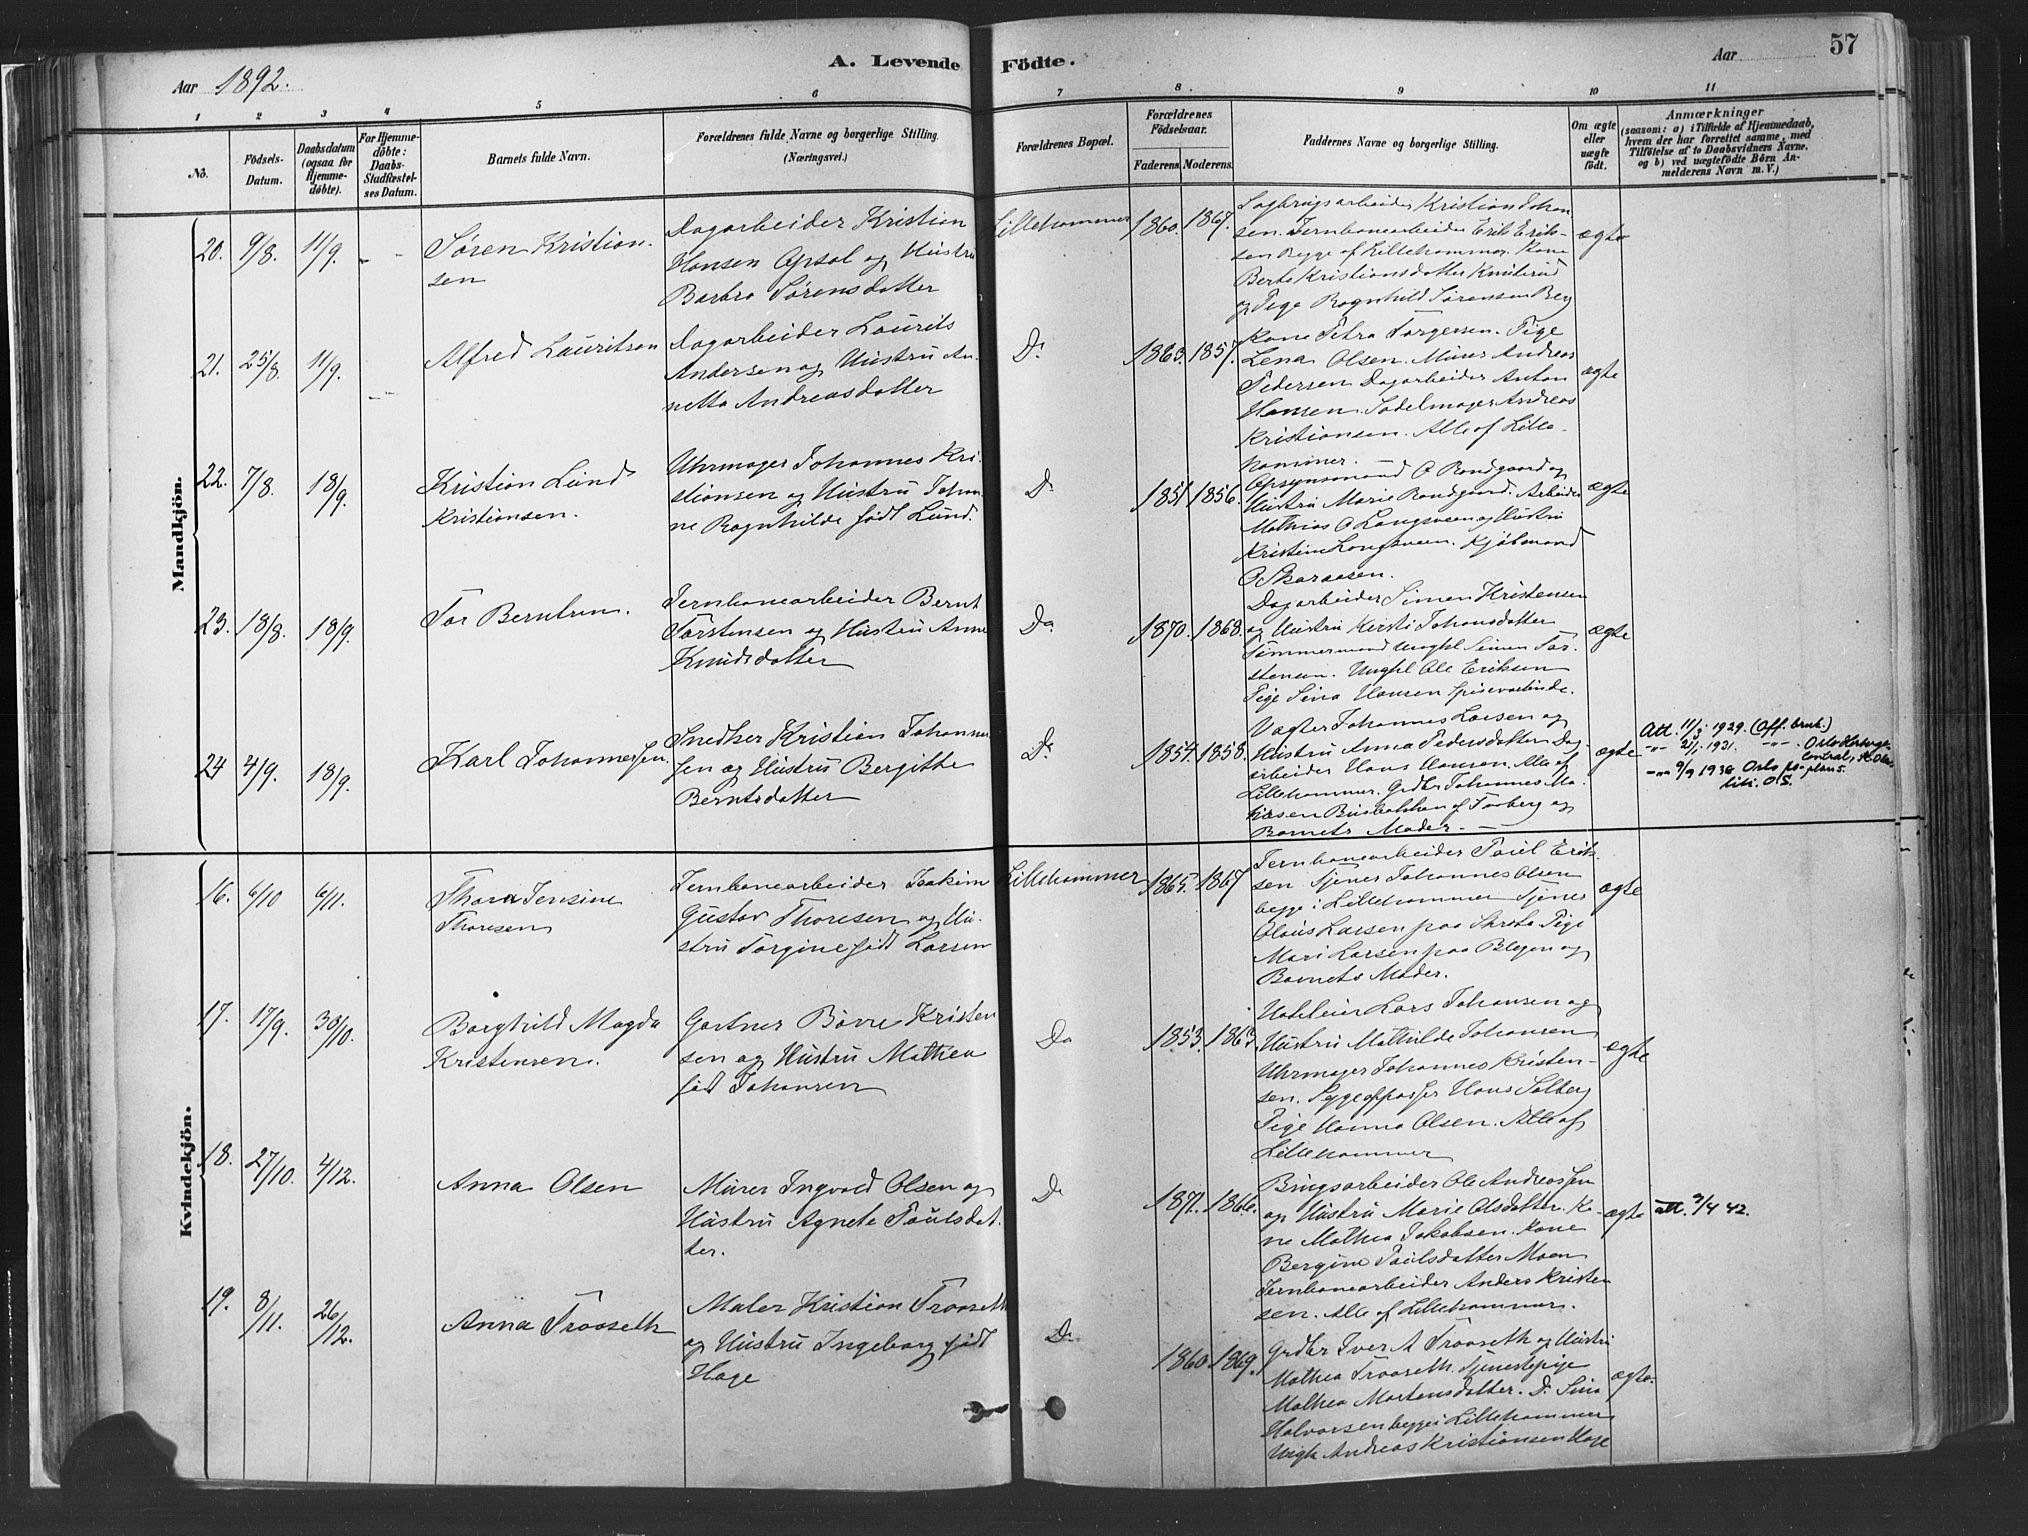 A. Levende Födte.
57
Aar 1892.
Aar
1 2 3 4 5 6 7 8. 9 10 11
No.
Födsels-
Datum.
Daabsdatum
(ogsaa for
Hjemme-
döbte).
For Hjemme-
döbte:
Daabs-
Stadfæstel-
ses Datum.
Barnets fulde Navn.
Forældrenes fulde Navne og borgerlige Stilling.
(Næringsvei.)
Forældrenes Bopæl.
Forældrenes
Födselsaar.
Faderens. Moderens.
Faddernes Navne og borgerlige Stilling.
Om ægte
eller
uægte
födt.
Anmærkninger
(saasom: a) i Tilfælde af Hjemmedaab,
hvem der har forrettet samme, med
Tilföielse af to Daabsvidners Navne,
og b) ved uægtefödte Börn An-
melderens Navn m. V.)
Mandkjön.
20. 9/8. 11/9. - -
Søren Kristian-
sen
Dagarbeider Kristian
Hansen Opsal og Hustru
Barbra Sørensdatter
Lillehammer
1860. 1867.
Sagbrugsarbeider Kristian Johan
sen. Jernbanearbeider Erik Erik-
sen Begge af Lillehammer. Kone
Berte Kristiansdatter Knuterud
og Pige Ragnhild Sørensen Berg
ægte
21. 25/8. 11/9.
Alfred Lauritsen
Dagarbeider Laurits
Andersen og Hustru An-
netta Andreasdatter
Do
1863. 1857.
Kone Petra Torgersen. Pige
Lena Olsen. Murer Andreas
Pedersen Dagarbeider Anton
Hansen. Sadelmager Andreas
Kristiansen. Alle af Lille-
hammer.
ægte
22. 7/8. 18/9.
Kristian Lund
Kristiansen.
Uhrmager Johannes Kri-
stiansen og Hustru Johan-
ne Ragnhilde født Lund.
Do
1851. 1856.
Opsynsmand O Rondgaard og
Hustru Marie Rondgaard. Arbeider
Mathias O Langsveen og Hustru
Kristine Langsveen. Kjøbmand
O Skaraasen.
ægte
23. 18/8. 18/9.
Tor Berntsen.
Jernbanearbeider Bernt
Torstensen og Hustru Anne
Knudsdatter
Do
1870. 1868.
Dagarbeider Simen Kristensen
og Hustru Kirsti Johansdatter
Tømmermand Unghl Simen Tor-
stensen. Unghl Ole Eriksen
Pige Sina Hansen Spisevertinde.
ægte
24 4/9. 18/9.
Karl Johannessen.
Snedker Kristian Johannes
sen og Hustru Bergitte
Berntsdatter
Do
1854. 1858.
Vagter Johannes Larsen og
Hustru Anna Pedersdatter Dag-
arbeider Hans Hansen. Alle af
Lillehammer. Grdbr Johannes Ma-
thisen Busbakken af Faaberg og
Barnets Moder. —
ægte
Att. 11/3 1929. (Off. bruk.)
-"- 21/1 1931. -"- . Oslo
-"- 9/9 1936 Oslo po-
liti. O.S.
Kvindekjön.
16. 6/10 6/11.
Thora Jensine
Thoresen
Jernbanearbeider Joakim
Gustav Thoresen og Hu-
stru Torgine født Larsen
Lillehammer
1865. 1867
Jernbanearbeider Paul Erik-
sen. Tjener Johannes Olsen
begge i Lillehammer Tjener
Olaus Larsen paa Pige
Mari Larsen paa Blegen og
Barnets Moder.
ægte
17. 17/9. 30/10.
Borghild Magda
Kristensen.
Gartner Börre Kristen
sen og Hustru Mathea
født Johansen
Do
1853. 1863.
Hoteleier Lars Johansen og
Hustru Mathilde Johansen
Uhrmager Johannes Kristen-
sen. Sygepasser Hans Solberg
Pige Hanna Olsen. Alle af
Lillehammer
ægte
18. 27/10. 4/12.
Anna Olsen
Murer Ingvald Olsen og
Hustru Agnete Paulsdat
ter.
Do
1871. 1866.
Brugsarbeider Ole Andreassen
og Hustru Marie Olsdatter. Ko-
ne Mathea Jakobsen. Kone
Bergine Paulsdatter Moen
Jernbanearbeider Anders Kristen
sen. Alle af Lillehammer.
ægte
att. 7/4 42.
19. 8/11. 26/12.
Anna Trooseth
Maler Kristian Trooseth
og Hustru Ingeborg født
Hage
Do
1860. 1869.
Grdbr Iver A Trooseth og Hustru
Mathea Trooseth. Tjenestepige
Mathea Mortensdatter. Do Sina
Halvorsen begge i Lillehammer
Ungk Andreas Kristiansen Hage
ægte.